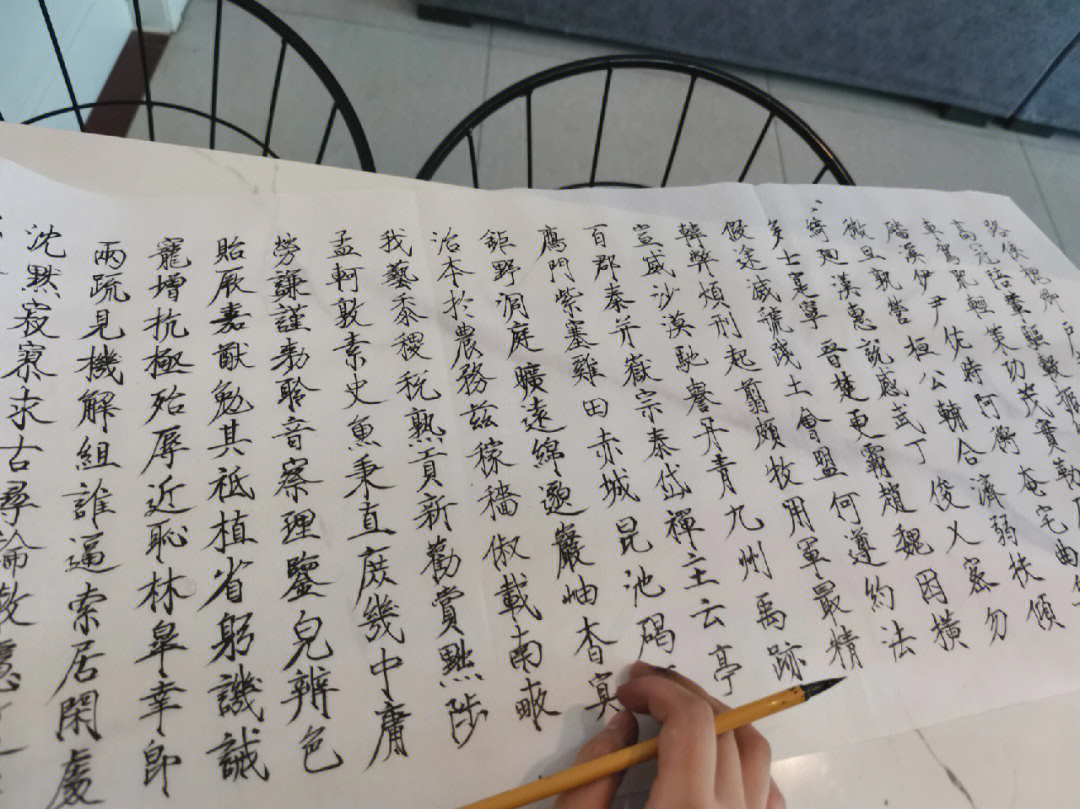 路俠槐卿户
高冠陪輦驅轂振
車駕肥輕策功茂實勒
磻溪伊尹佐時阿衡奄宅曲
微旦孰營桓公輔合濟弱扶傾
綺廻漢惠說感武丁俊乂密勿
多士寔寧晉楚更霸趙魏因橫
假途滅虢踐土會盟何遵約法
韓弊煩刑起翦頗牧用軍最精
宣威沙漠馳譽丹青九州禹跡
百郡秦并嶽宗泰岱禪主云亭
鴈門紫塞雞田赤城昆池碣
鉅野洞庭曠遠綿邈巖岫杳冥
治本於農務茲稼穡俶載南畝
我藝黍稷稅熟貢新勸賞黜陟
孟軻敦素史魚秉直庶幾中庸
勞謙謹勑聆音察理鑒皃辨色
貽厥嘉猷勉其祗植省躬譏誡
寵增抗極殆辱近恥林皋幸即
兩疏見機解組誰逼索居閑處
沈默寂寥求古尋論散慮